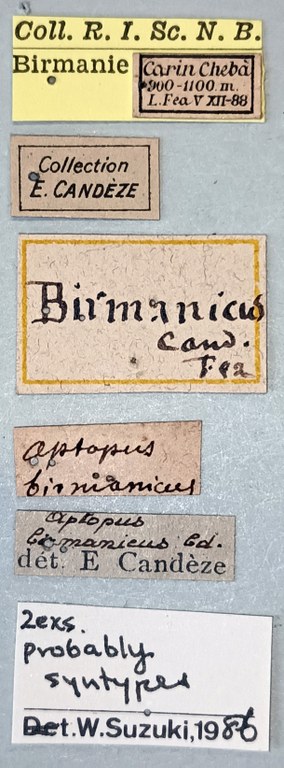 Coll. R. I. Sc. N. B.
Birmanie
Carin Chebà
900-1100 m.
L. Fea V XII-88
Collection
E. CANDÈZE
Birmanicus
Cand.
Fea
Aptopus
birmanicus
Aptopus
birmanicus Cd.
dét. E Candèze
2exs.
probably
syntypes
Det. W. Suzuki, 1986